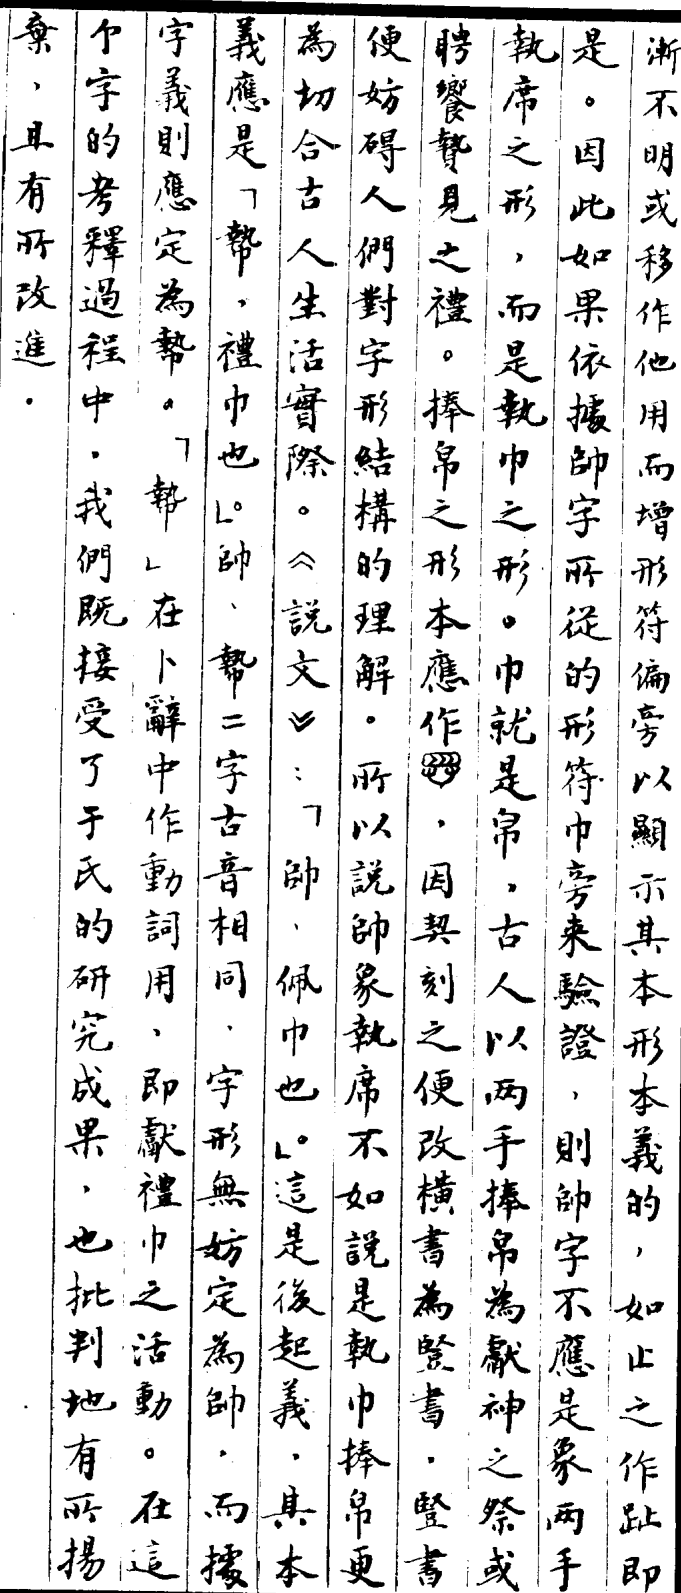 漸不明或移作他用而增形符偏旁以顯示其本形本義的，如止之作趾即
是。因此如果依據帥字所從的形符巾旁来驗證，則帥字不應是象两手
執席之形，而是執巾之形。巾就是帛，古人以两手捧帛為獻神之祭或
聘饗贄見之禮。捧帛之形本應作，因契刻之便改橫書為竪書，豎書
便妨碍人們對字形結構的理解。所以説帥象執席不如説是執巾捧帛更
為切合古人生活實際。《説文》：「帥、佩巾也」。這是後起義，其本
義應是「幣，禮巾也」。帥、幣二字古音相同，字形無妨定為帥，而據
字義則應定為幣。「幣」在卜辭中作動詞用，即獻禮巾之活動。在這
个字的考釋過程中，我們既接受了于氏的研究成果，也批判地有所揚
棄，且有所改進。